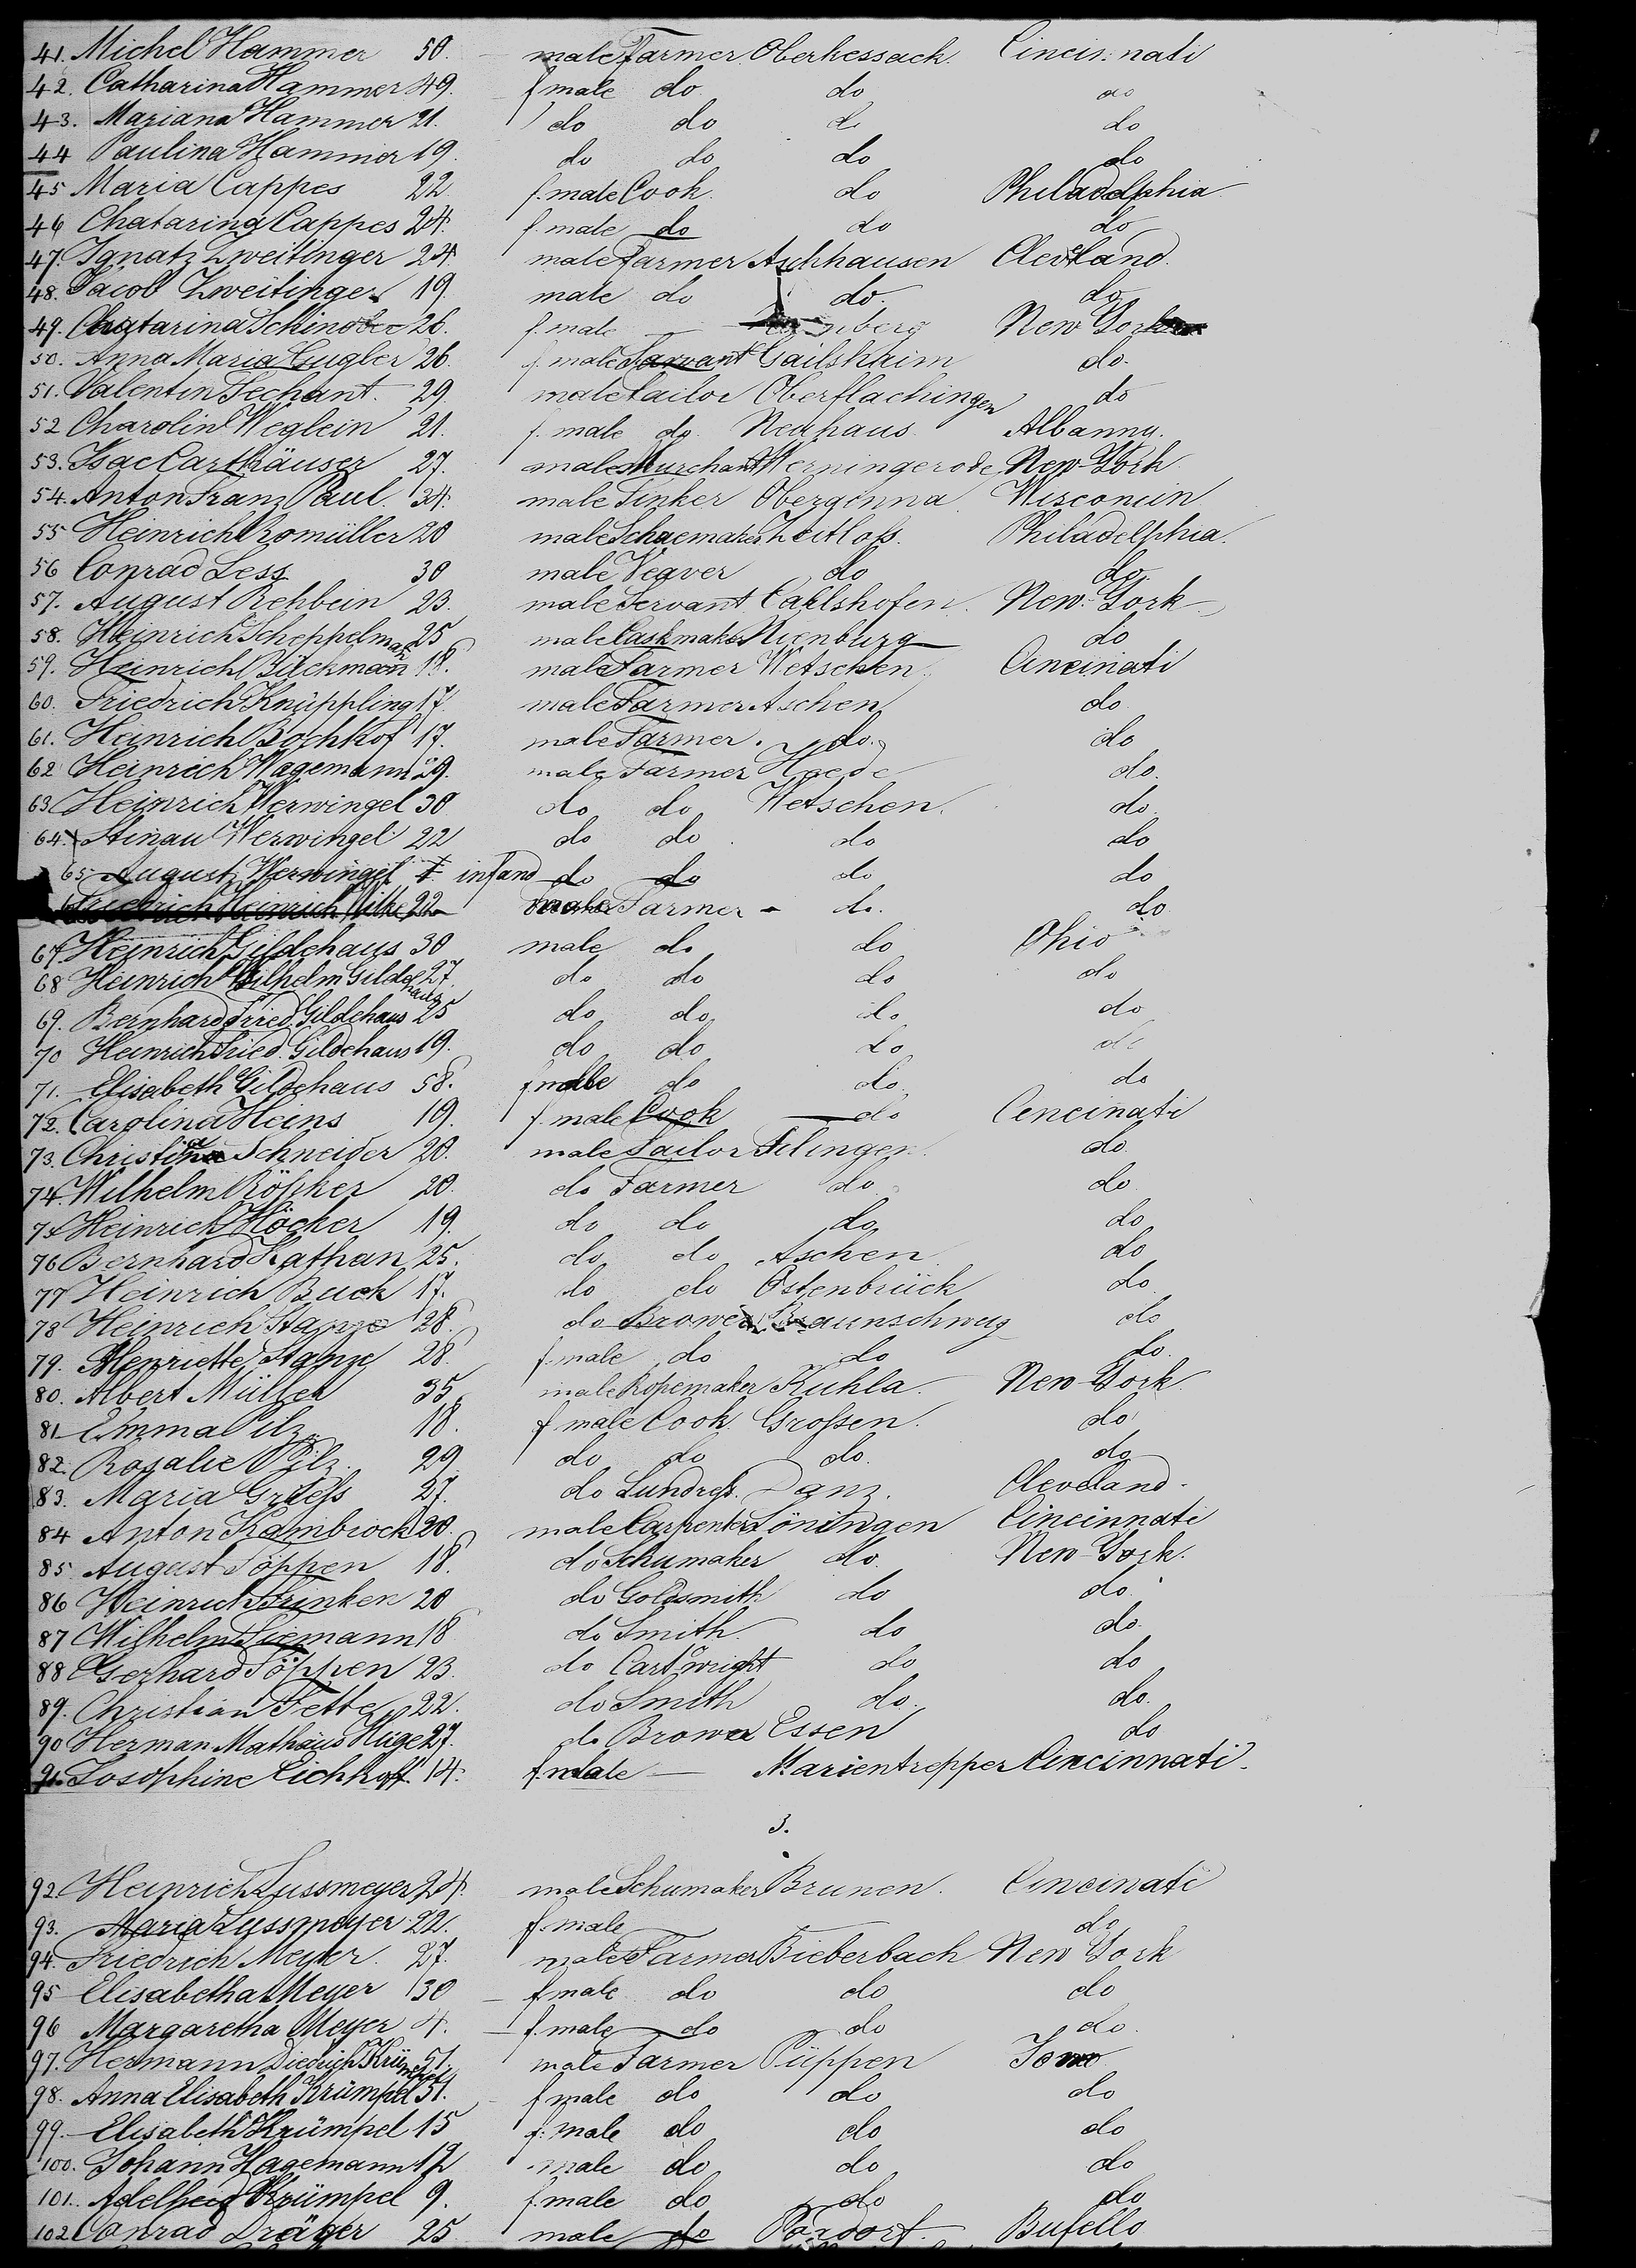 41. Michel Hammer 50. male Farmer Oberkessach. Cincinnati
42. Catharina Hammer 49. f male do do do
43. Mariana Hammer 21. do do do do
44 Paulina Hammer 19. do do do do
45 Maria Cappes 22 f. male Cook. do Philadelphia
46 Chatarina Cappes 24. f. male do do do
47. Ignatz Zweitinger 24. male Farmer Aschhausen Cleveland.
48. Jacob Zweitinger 19. male do do. do
49. Chatarina 26. f. male — New York
50. Anna Maria Gugler 26. f. male Servant Gailshaim do.
51. Valentin Techant. 29. male Tailor Oberflachingen do
52 Charolin Weglein 21. f. male do. Neuhaus. Albanny.
53. Isac Carthäuser 27. male Murchant Werningerode New-York
54. Anton Franz Paul. 34. male Tinker Obergönna Wisconsin
55 Heinrich Romüller 20 male Schoemaker Zeitlofs. Philadelphia.
56 Conrad Less 30 male Veaver do do
57. August Rehbein 23. male Servant Carlshofen. New-York
58. Heinrich Scheppelman 25 male Caskmaker Nienburg do
59. Heinrich Bäckmann 18. male Farmer Wetschen. Cincinati
60. Friedrich Knüppling 17. male Farmer Aschen do
61. Heinrich Bockhof 17. male Farmer. do. do
62 Heinrich Wagemann 29. male Farmer Hoede do.
63 Heinrich Werwingel 30 do do Wetschen. do
64. Stinau Werwingel 22 do do do do
65. August Werwingel infand do do do do
Heinrich Wilke 22 male Farmer - do. do
67. Heinrich Gildehaus 30 male do do Ohio
68 Heinrich Wilhelm Gildehaus 27. do do do do
69. Bernhard Fried. Gildehaus 25 do do do do
70 Heinrich Fried. Gildehaus 19. do do do do
71. Elisabeth Gildehaus 58. f male do do. do
72. Carolina Heins 19. f. male Cook do Cencinati
73. Christian Schneider 20. male Tailor do.
74. Wilhelm Röpker 20. do Farmer do do
75 Heinrich Höcker 19. do do do do
76 Bernhard Kathan 25. do do Aschen do
77 Heinrich Buck 17. do do Ostenbrück do
78 Heinrich Stange 28. do Brower Braunschweig do
79. Henriette Stange 28. f. male do do do.
80. Albert Müller 35. male Ropemaker Ruhla. New-York
81. Emma Pilz 18. f male Cook. Grossen. do
82. Rosalie Pilz 29. do do do. do
83. Maria 27. do Lundress. Danz. Cleveland.
84 Anton Kambrock 20. male Carpenter Löningen Cincinnati
85. August Töppen 18. do Schumaker do. New-York.
86 Heinrich Brinker 20 do Goldsmith do do.
87 Wilhelm Siemann 18 do Smith. do do.
88 Gerhard Töppen 23. do Cartwright do do
89. Christian Fette 22. do Smith do. do.
90 Herman Mathäus Hüge 27. do Brower Essen do
91. Josophine Eichhoff. 14. f. male — Marientrepper Cincinnati.
3.
92. Heinrich Lussmeyer 24. male Schumaker Brunen. Cincinati
93. Maria Lussmeyer 22. f. male do
94. Friedrich Meyer. 27. male Farmer Bieberbach New York
95 Elisabetha Meyer 30 f male do do do
96 Margaretha Meyer 4. f. male do do do.
97. Hermann Diedrich Krümpel 51. male Farmer Püppen Iowa
98. Anna Elisabeth Krümpel 51. f male do do do
99. Elisabeth Krümpel 15 f. male do do do
100. Johann Hagemann 12 male do do do
101. Adelheid Krümpel 9. f. male do do do
102. Conrad Dräger 25 male do Poxdorf. Bufello